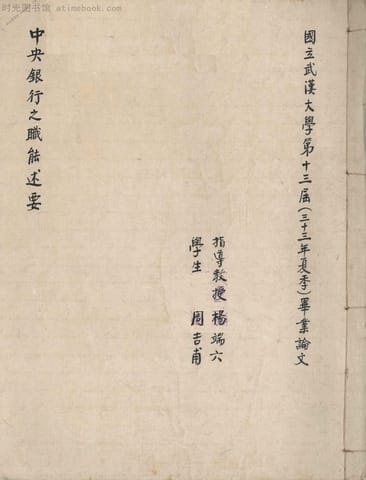 时光图书馆 atimebook.com
國立武漢大學第十三屆(三十三年夏季)畢業論文
指導教授 楊端六
學生 周吉甫
中央銀行之職能述要